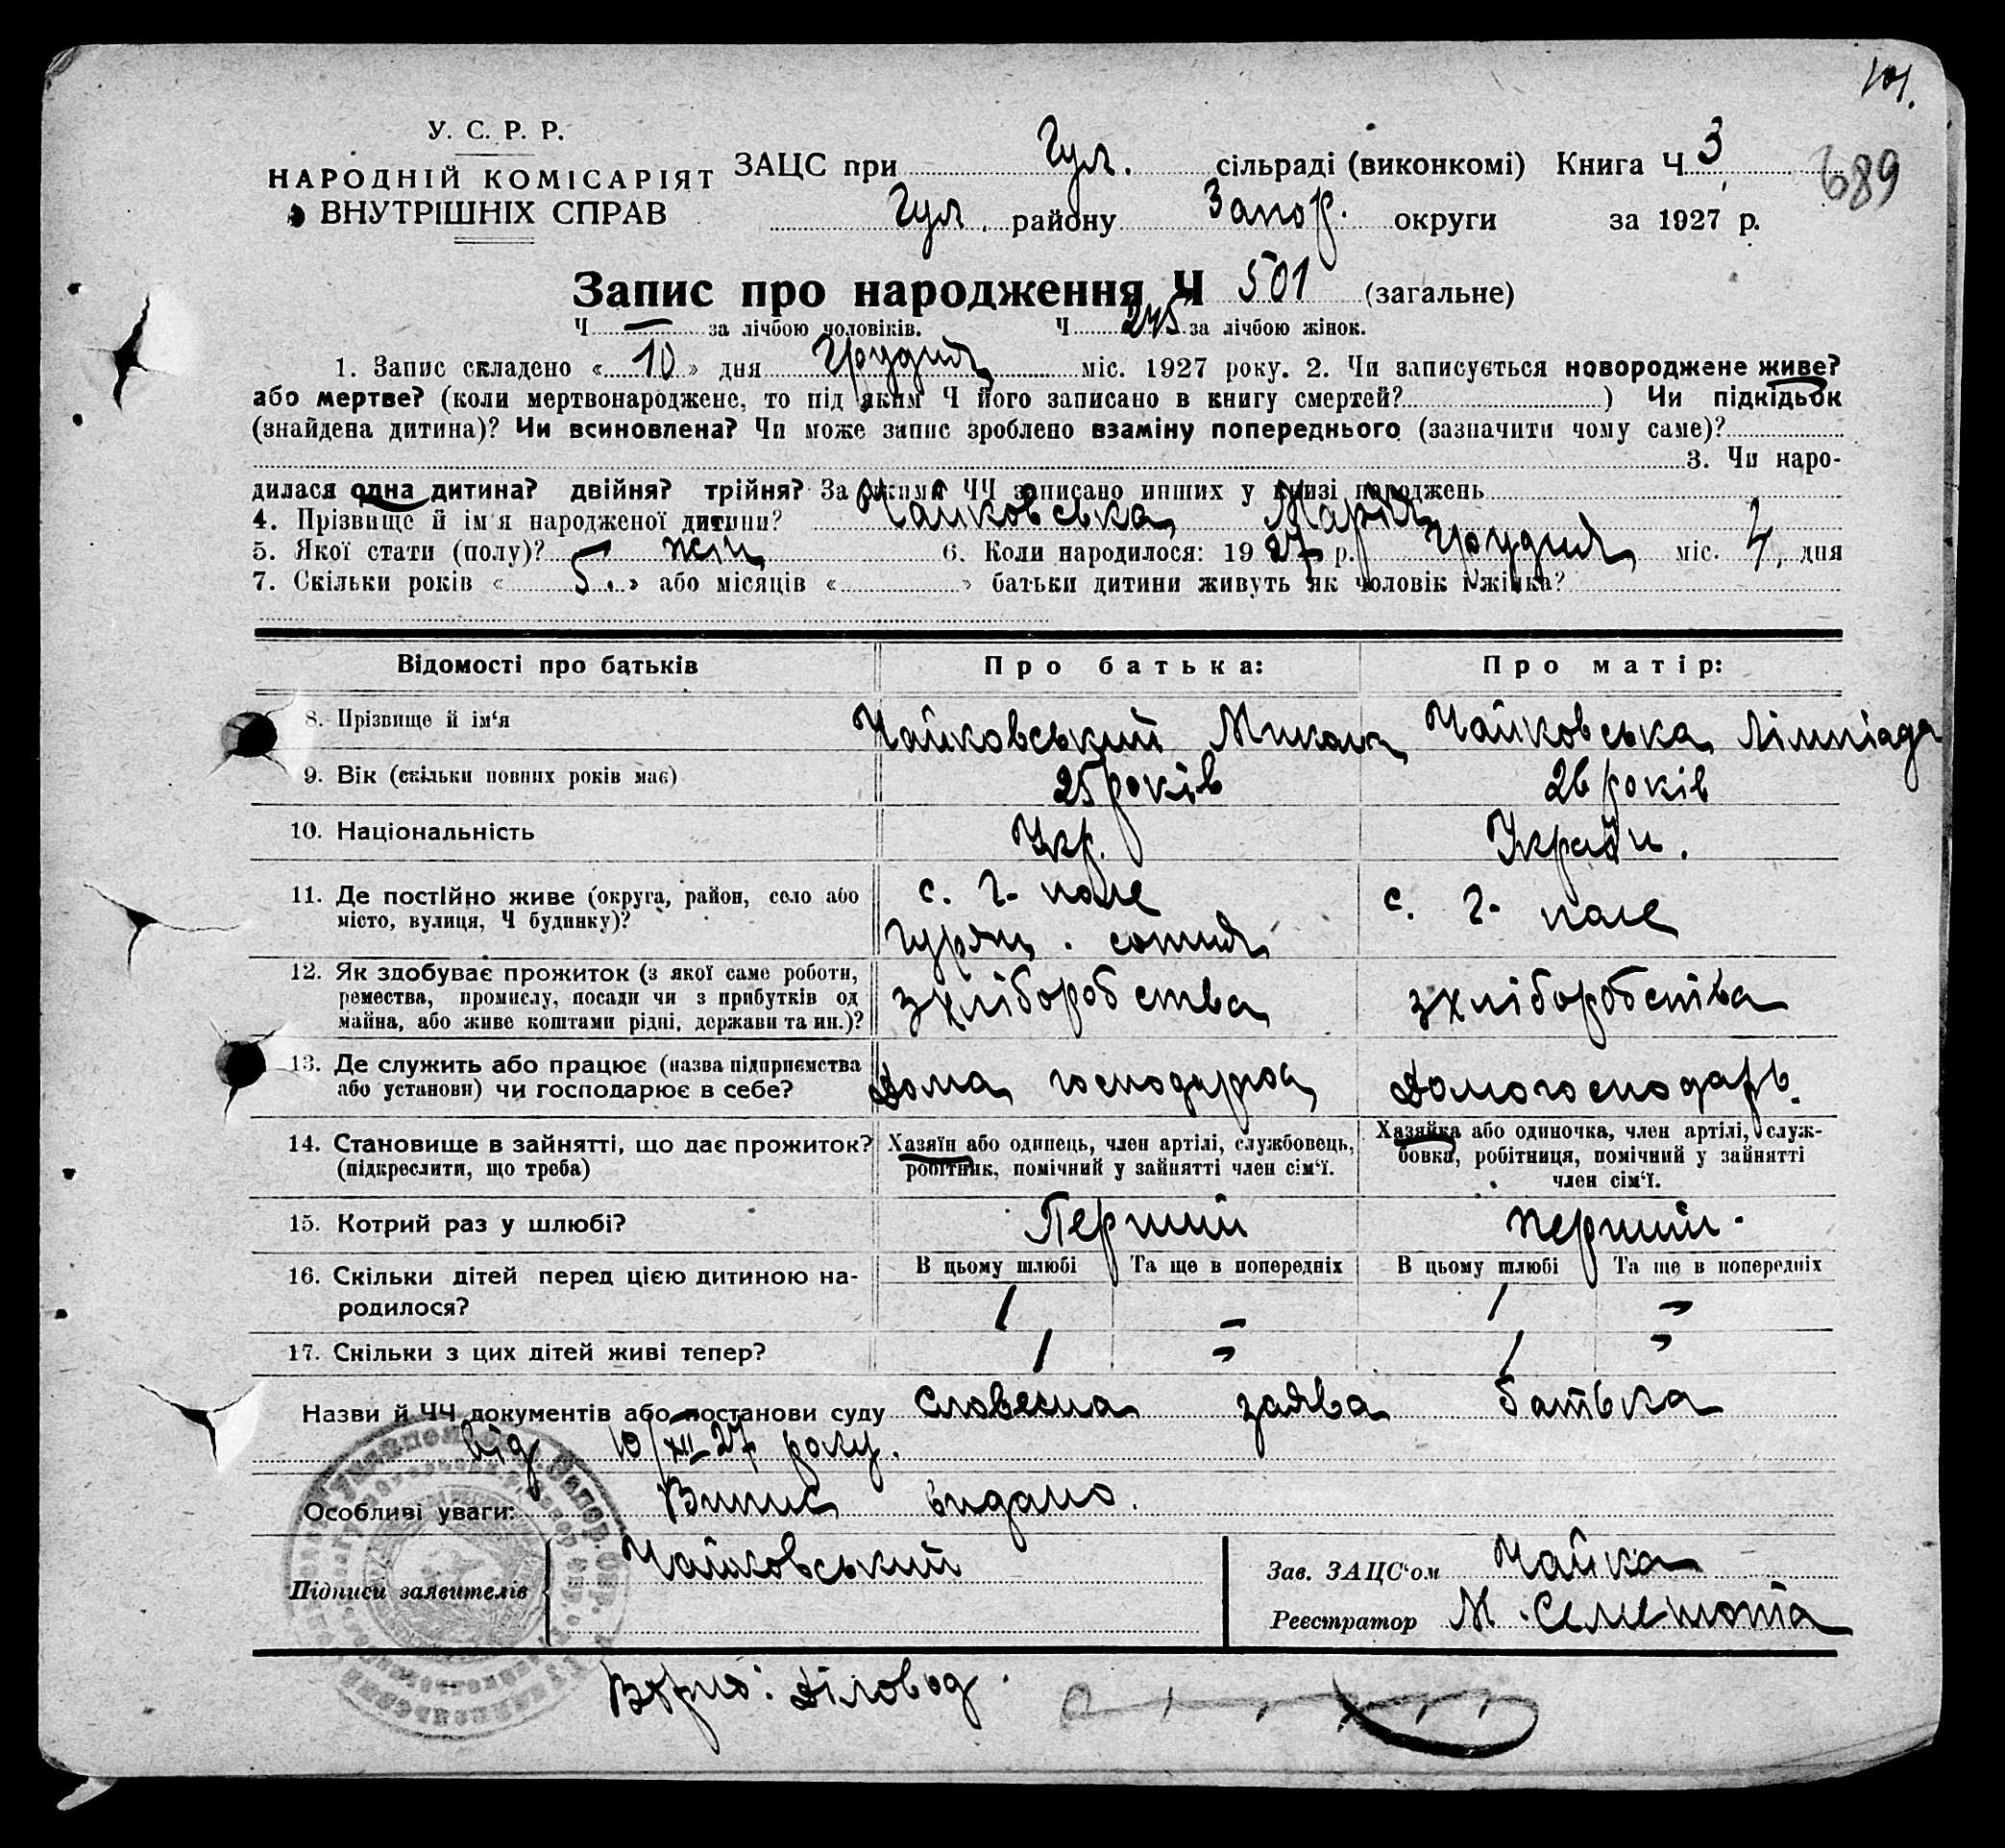 101.
У. С. Р. Р.
НАРОДНІЙ КОМІСАРІЯТ
ВНУТРІШНІХ СПРАВ
ЗАЦС при Гул. сільраді (виконкомі) Книга Ч 3
689
Гул. району Запор. округи за 1927 р.
Запис про народження Ч 501 (загальне)
Ч — за лічбою чоловіків. Ч 245 за лічбою жінок.
1. Запис складено « 10 » дня Грудня міс. 1927 року. 2. Чи записується новороджене живе?
або мертве? (коли мертвонароджене, то під яким Ч його записано в книгу смертей? ) Чи підкідьок
(знайдена дитина)? Чи всиновлена? Чи може запис зроблено взаміну попереднього (зазначити чому саме)?
3. Чи наро-
дилася одна дитина? двійня? трійня? За якими ЧЧ записано инших у книзі народжень
4. Прізвище й ім'я народженої дитини? Чайковська Марія
5. Якої стати (полу)? жін 6. Коли народилося: 1927 р. Грудня міс. 4, дня
7. Скільки років « 5 » або місяців « » батьки дитини живуть як чоловік і жінка?
Відомості про батьків Про батька: Про матір:
8. Прізвище й ім'я Чайковський Микола Чайковська Лімпіада
9. Вік (скільки повних років має) 25 років 26 років
10. Національність Укр. Україн.
11. Де постійно живе (округа, район, село або с. Г-поле с. Г-поле
місто, вулиця, Ч будинку)? сотня
12. Як здобуває прожиток (з якої саме роботи, зхліборобства зхліборобства
ремества, промислу, посади чи з прибутків од
майна, або живе коштами рідні, держави та ин.)?
13. Де служить або працює (назва підприємства Дома Домогосподарь.
або установи) чи господарює в себе?
14. Становище в зайнятті, що дає прожиток? Хазяїн або одинець, член артілі, службовець, Хазяйка або одиночка, член артілі, служ-
(підкреслити, що треба) робітник, помічний у зайнятті член сім'ї. бовка, робітниця, помічний у зайнятті
член сім'ї.
15. Котрий раз у шлюбі? Перший перший.
16. Скільки дітей перед цією дитиною на- В цьому шлюбі Та ще в попередніх В цьому шлюбі Та ще в попередніх
родилося? 1 – 1 –
17. Скільки з цих дітей живі тепер? 1 – 1 –
Назви й ЧЧ документів або постанови суду Словесна заява батька
від 10/XII–27 року.
Особливі уваги: Випис видано.
Підписи заявителів Чайковський
Зав. ЗАЦС'ом Чайка
Реєстратор М. Семенота
Вірно: Діловод